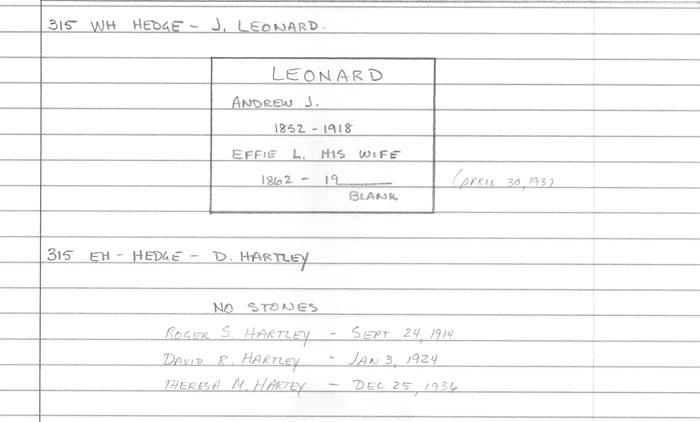 315 WH HEDGE - J. LEONARD.
LEONARD
ANDREW J.
1852 - 1918
EFFIE L. HIS WIFE
1862 - 19____ (APRIL 30, 1937
BLANK
315 EH - HEDGE - D. HARTLEY
NO STONES
ROGER S. HARTLEY - SEPT 24, 1914
DAVID R. HARTLEY - JAN 3, 1924
THERESA M. HARTEY - DEC 25, 1936